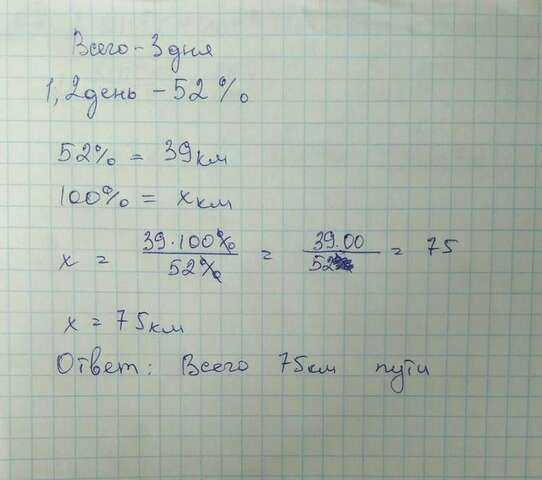 Всего - 3 дня
1,2 день - 52%
52% = 39км
100% = x км
x = 39·100% / 52% = 39.00 / 52 = 75
x = 75км
Ответ: Всего 75км пути